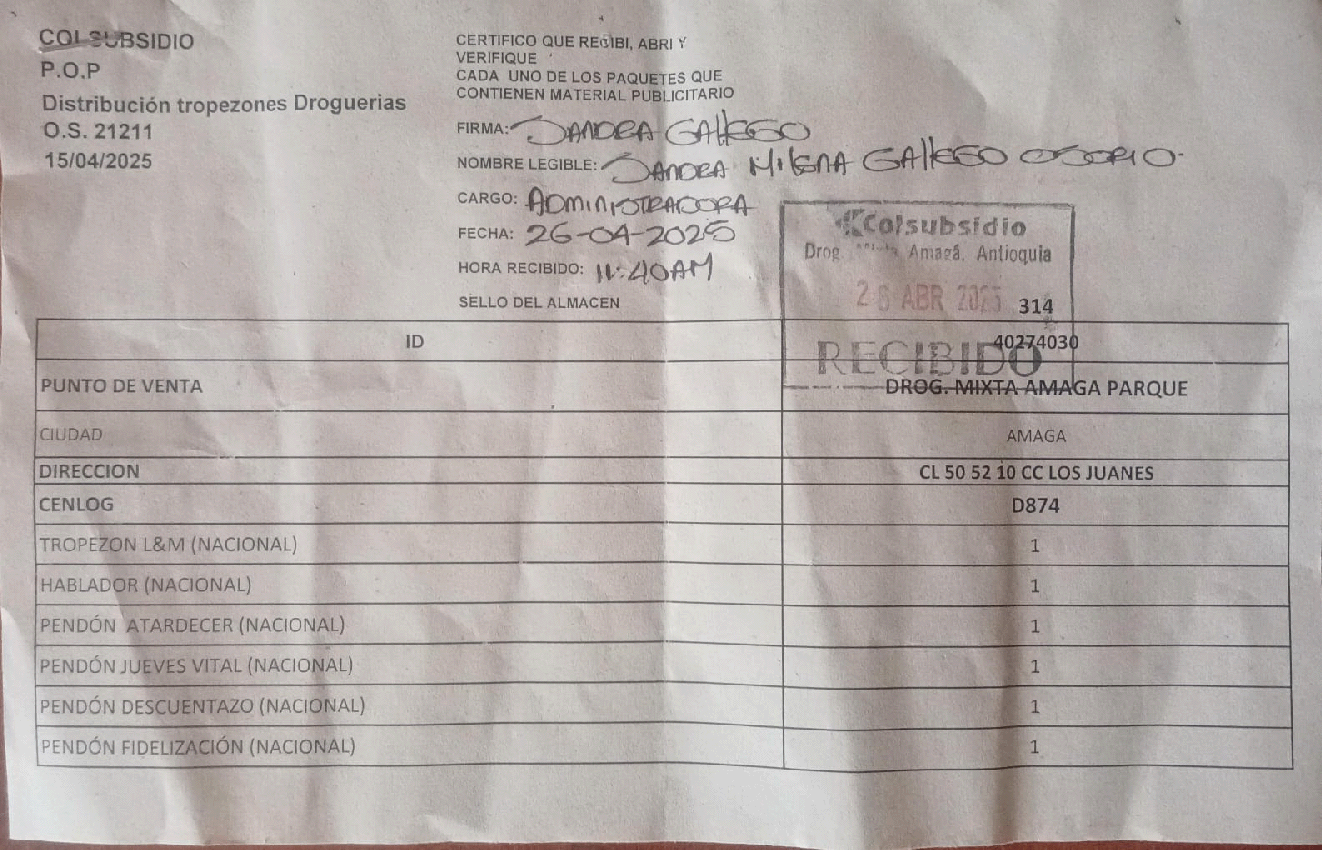 COLSUBSIDIO
P.O.P
Distribución tropezones Droguerias
O.S. 21211
15/04/2025
CERTIFICO QUE RECIBI, ABRI Y
VERIFIQUE
CADA UNO DE LOS PAQUETES QUE
CONTIENEN MATERIAL PUBLICITARIO
FIRMA: SANDRA GALLEGO
NOMBRE LEGIBLE: SANDRA MILENA GALLEGO OSORIO
CARGO: ADMINISTRADORA
FECHA: 26-04-2025
HORA RECIBIDO: 11:40AM
SELLO DEL ALMACEN
Colsubsidio
Drog. Amagá, Antioquia
26 ABR 2025
314
RECIBIDO
ID 40274030
PUNTO DE VENTA DROG. MIXTA AMAGA PARQUE
CIUDAD AMAGA
DIRECCION CL 50 52 10 CC LOS JUANES
CENLOG D874
TROPEZON L&M (NACIONAL) 1
HABLADOR (NACIONAL) 1
PENDÓN ATARDECER (NACIONAL) 1
PENDÓN JUEVES VITAL (NACIONAL) 1
PENDÓN DESCUENTAZO (NACIONAL) 1
PENDÓN FIDELIZACIÓN (NACIONAL) 1